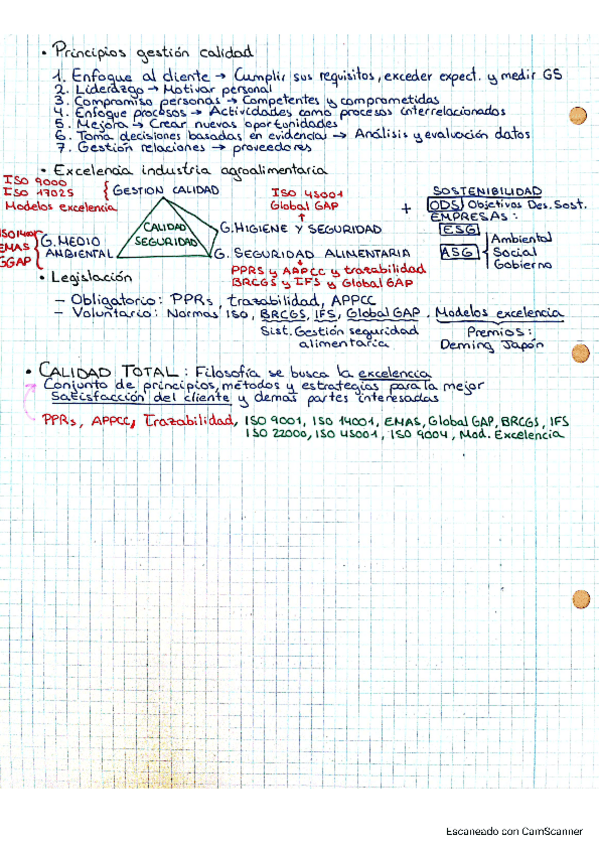 • Principios gestión calidad
1. Enfoque al cliente → Cumplir sus requisitos, exceder expect. y medir GS
2. Liderazgo → Motivar personal
3. Compromiso personas → Competentes y comprometidas
4. Enfoque procesos → Actividades como procesos interrelacionados
5. Mejora → Crear nuevas oportunidades
6. Toma decisiones basadas en evidencias → Análisis y evaluación datos
7. Gestión relaciones → proveedores
• Excelencia industria agroalimentaria
ISO 9000
ISO 17025
Modelos excelencia
GESTION CALIDAD
ISO 45001
Global GAP
↑
G. HIGIENE Y SEGURIDAD
CALIDAD
SEGURIDAD
ISO 14001
EMAS
GGAP
G. MEDIO
AMBIENTAL
G. SEGURIDAD ALIMENTARIA
↓
PPRS y APPCC y trazabilidad
BRCGS y IFS y Global GAP
+
SOSTENIBILIDAD
ODS Objetivos Des. Sost.
EMPRESAS:
ESG
ASG
Ambiental
Social
Gobierno
• Legislación
– Obligatorio: PPRs, trazabilidad, APPCC
– Voluntario: Normas ISO, BRCGS, IFS, Global GAP. Modelos excelencia
Sist. Gestión seguridad
alimentaria
Premios:
Deming Japón
• CALIDAD TOTAL: Filosofía se busca la excelencia
Conjunto de principios, métodos y estrategias para la mejor
Satisfacción del cliente y demás partes interesadas
PPRs, APPCC, Trazabilidad, ISO 9001, ISO 14001, EMAS, Global GAP, BRCGS, IFS
ISO 22000, ISO 45001, ISO 9004, Mod. Excelencia
Escaneado con CamScanner